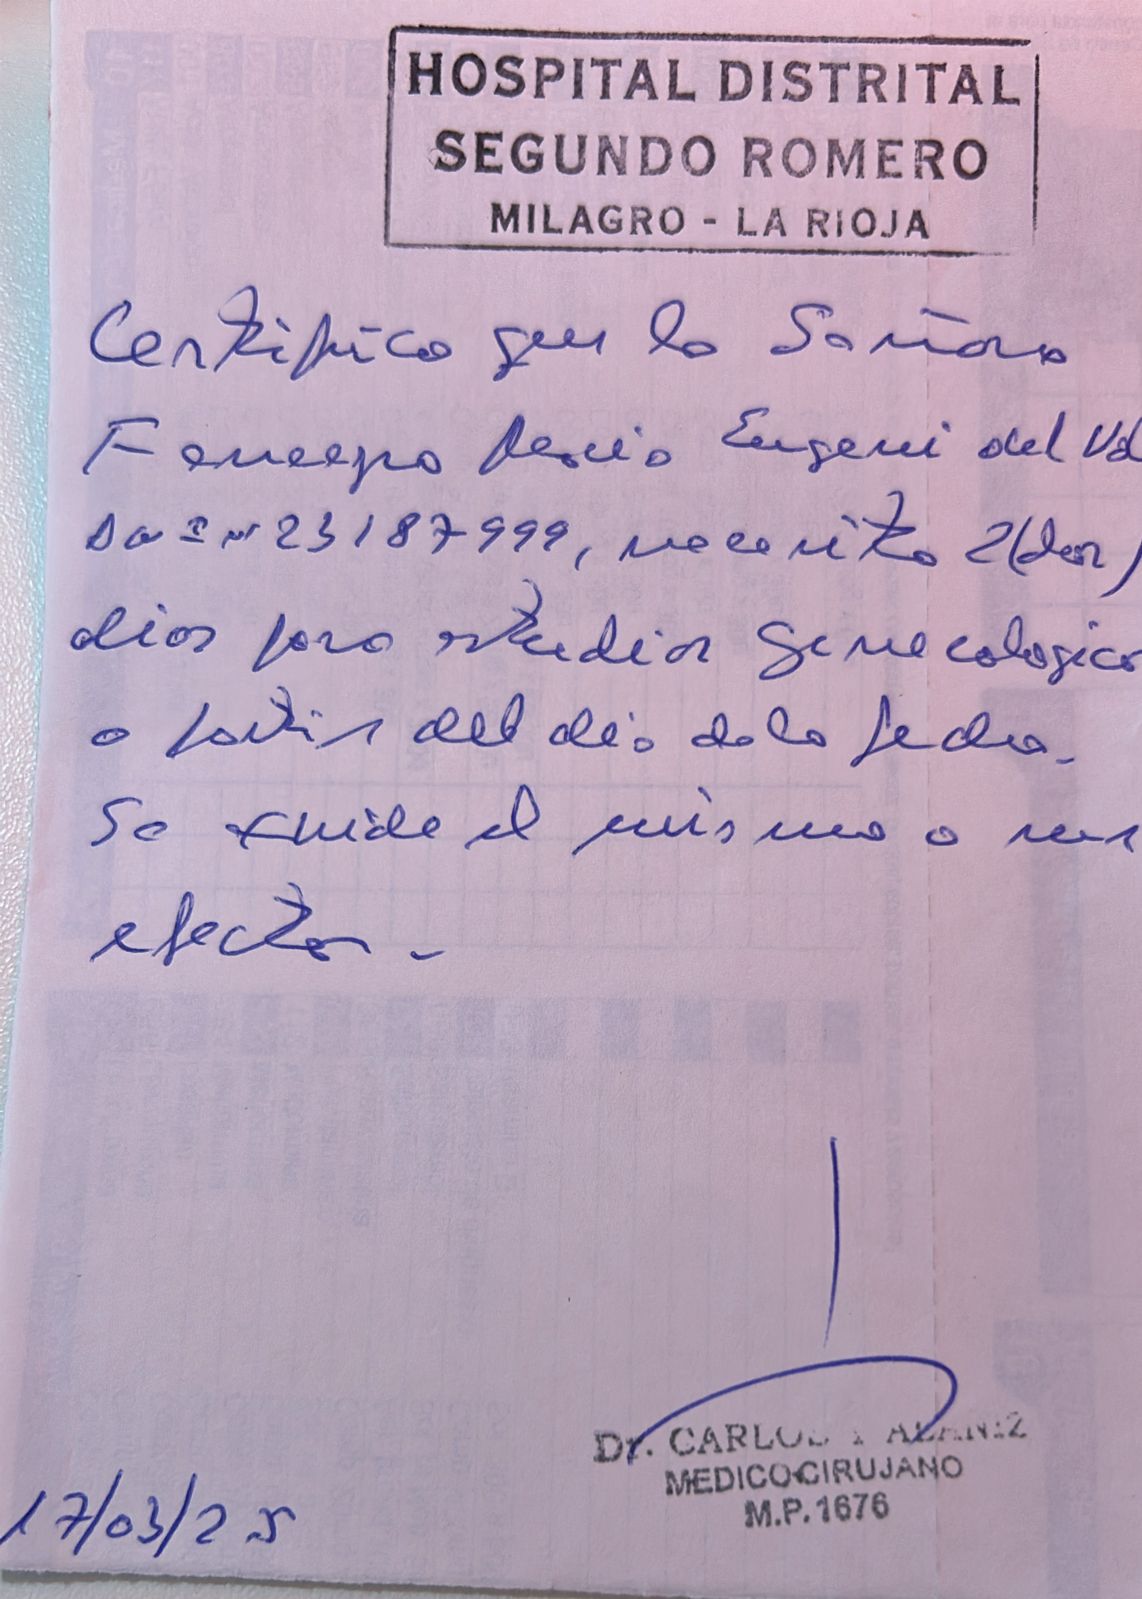 HOSPITAL DISTRITAL
SEGUNDO ROMERO
MILAGRO - LA RIOJA
Certifico que la Señora
Eugeni del Val
23187999, necesita 2(dos)
dias para estudios ginecologicos
a partir del dia de la fecha.
Se extiende el mismo a sus
efectos.-
Dr. CARLOS ALANIZ
MEDICO CIRUJANO
M.P. 1676
17/03/25